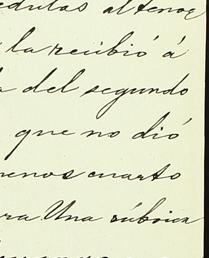 edulas al tenor
la recibió á
a del segundo
que no dió
menos cuarto
ra Una rúbrica